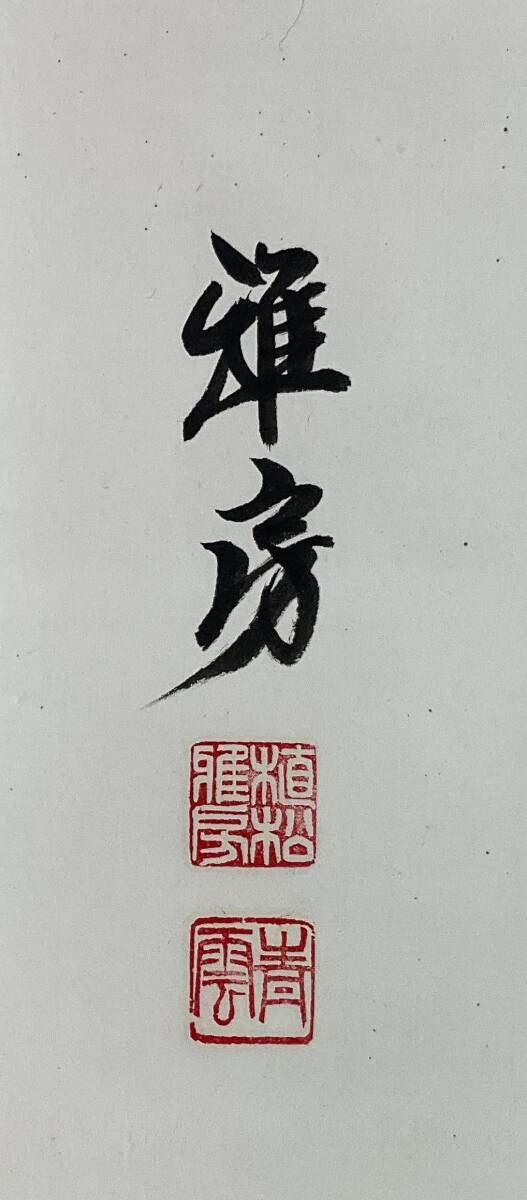 雅房
植松
雅房
青雲